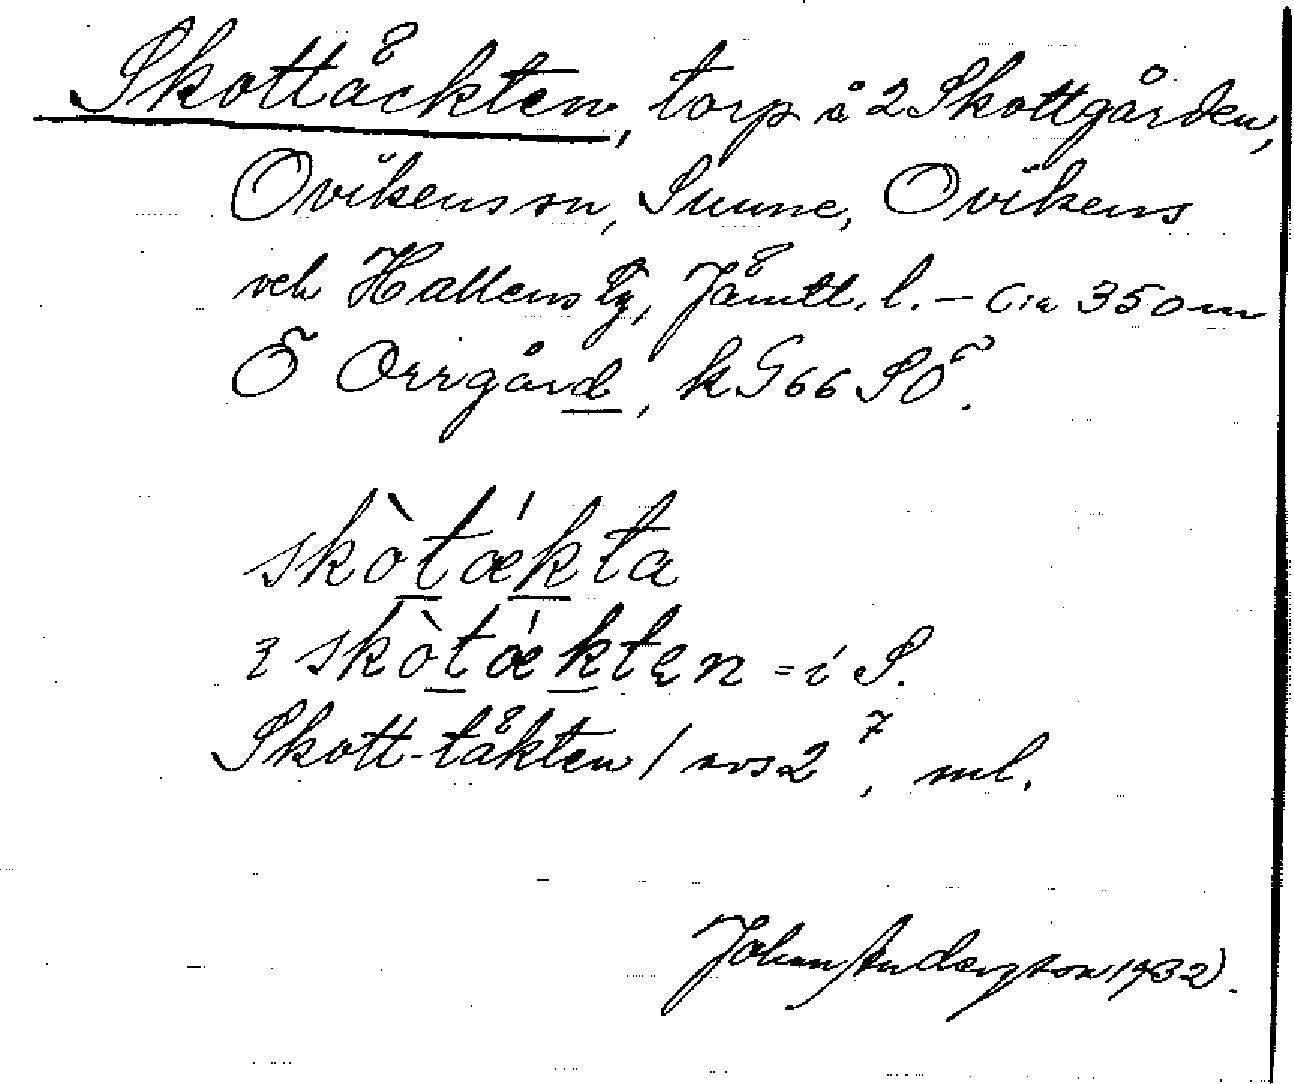 Skottäckten, torp å 2 Skottgården,
Ovikens sn, Sunne, Ovikens
och Hallens tg, Jämtl. l. – Ca 350 m
Ö Orrgård, k G 66 SÖ.
skòtǽkta
skòtǽkten = i S.
Skott-täkten / avs 2, ml.
Johan Anderzon 1932.